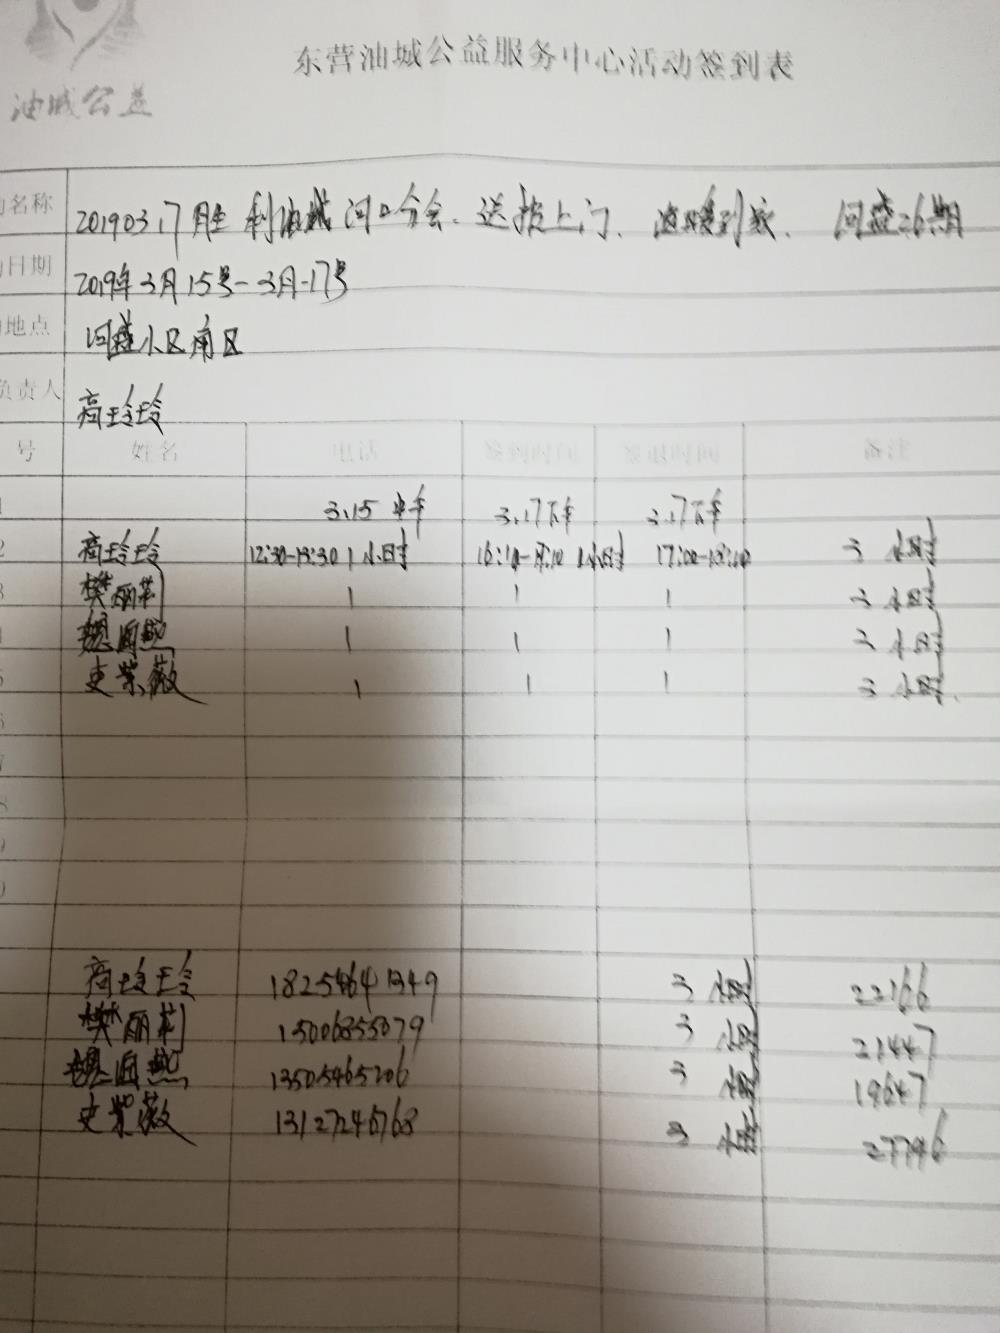 东营油城公益服务中心活动签到表
油城公益
名称 2019 03.17 胜利油城河口分会、送报上门、温暖到家、 河盛26期
日期 2019年3月15号-3月-17号
地点 河盛小区南区
负责人 高玲玲
号 姓名 电话 签到时间 签退时间 备注
3.15 中午 3.17下午 3.17下午
2 高玲玲 12:30-13:30 1小时 16:10-17:10 1小时 3小时
樊丽莉 1 1 1 3小时
1 1 1 3小时
史紫薇 1 1 1 3小时.
高玲玲 18254641349 3小时 22166
樊丽莉 15006855079 3小时 21447
13505465206 3小时 19647
史紫薇 13127246768 3小时 27746